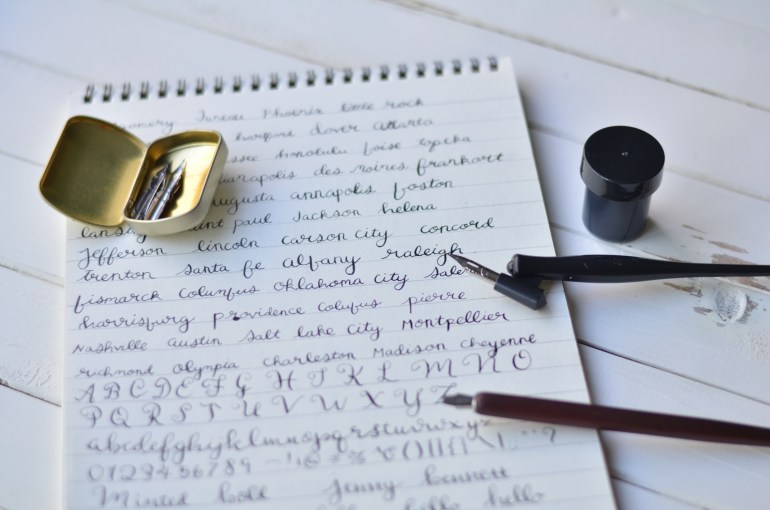 Juneau Phoenix little rock
hartford dover atlanta
honolulu boise topeka
des moines frankfort
augusta annapolis boston
paul Jackson helena
Jefferson lincoln carson city concord
trenton santa fe albany raleigh
bismarck columbus oklahoma city
harrisburg providence columbus pierre
Nashville austin salt lake city Montpellier
richmond olympia charleston Madison cheyenne
A B C D E F G H I K L M N O
P Q R S T U V W X Y Z
abcdefghijklmnopqrstuvwxyz
0123456789
Minted bold Jenny bennett
hello hello